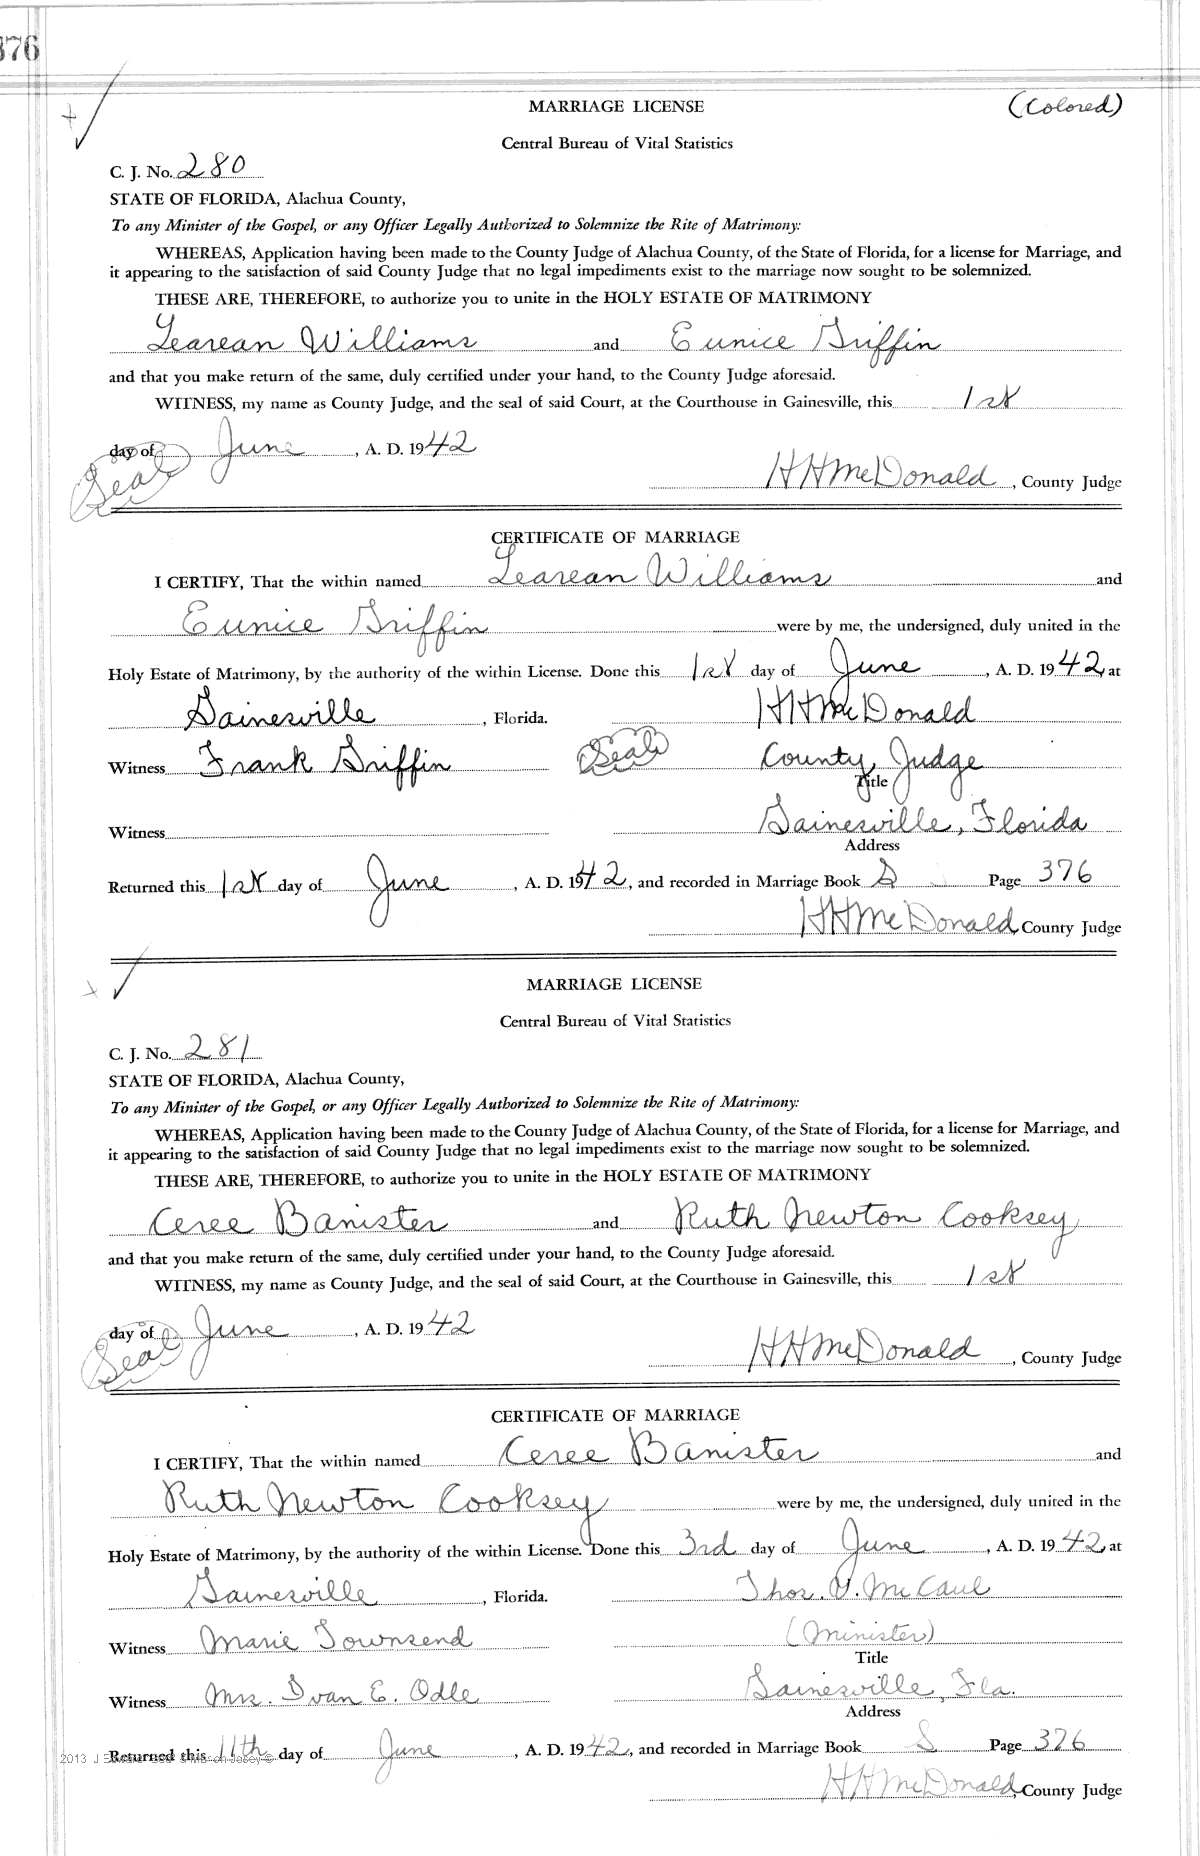 376
MARRIAGE LICENSE (Colored)
Central Bureau of Vital Statistics
C. J. No. 280
STATE OF FLORIDA, Alachua County,
To any Minister of the Gospel, or any Officer Legally Authorized to Solemnize the Rite of Matrimony:
WHEREAS, Application having been made to the County Judge of Alachua County, of the State of Florida, for a license for Marriage, and
it appearing to the satisfaction of said County Judge that no legal impediments exist to the marriage now sought to be solemnized.
THESE ARE, THEREFORE, to authorize you to unite in the HOLY ESTATE OF MATRIMONY
Learean Williams and Eunice Griffin
and that you make return of the same, duly certified under your hand, to the County Judge aforesaid.
WITNESS, my name as County Judge, and the seal of said Court, at the Courthouse in Gainesville, this 1st
day of June, A. D. 1942
(Seal) H H McDonald, County Judge
CERTIFICATE OF MARRIAGE
I CERTIFY, That the within named Learean Williams and
Eunice Griffin were by me, the undersigned, duly united in the
Holy Estate of Matrimony, by the authority of the within License. Done this 1st day of June, A. D. 1942, at
Gainesville, Florida. H H McDonald
Witness Frank Griffin (Seal) County Judge
Title
Witness Gainesville, Florida
Address
Returned this 1st day of June, A. D. 1942, and recorded in Marriage Book S Page 376
H H McDonald, County Judge
MARRIAGE LICENSE
Central Bureau of Vital Statistics
C. J. No. 281
STATE OF FLORIDA, Alachua County,
To any Minister of the Gospel, or any Officer Legally Authorized to Solemnize the Rite of Matrimony:
WHEREAS, Application having been made to the County Judge of Alachua County, of the State of Florida, for a license for Marriage, and
it appearing to the satisfaction of said County Judge that no legal impediments exist to the marriage now sought to be solemnized.
THESE ARE, THEREFORE, to authorize you to unite in the HOLY ESTATE OF MATRIMONY
Ceree Banister and Ruth Newton Cooksey
and that you make return of the same, duly certified under your hand, to the County Judge aforesaid.
WITNESS, my name as County Judge, and the seal of said Court, at the Courthouse in Gainesville, this 1st
day of June, A. D. 1942
(Seal) H H McDonald, County Judge
CERTIFICATE OF MARRIAGE
I CERTIFY, That the within named Ceree Banister and
Ruth Newton Cooksey were by me, the undersigned, duly united in the
Holy Estate of Matrimony, by the authority of the within License. Done this 3rd day of June, A. D. 1942, at
Gainesville, Florida. Thos. V. McCaul
Witness Marie Townsend (Minister)
Title
Witness Mrs. Ivan E. Odle Gainesville, Fla.
Address
Returned this 11th day of June, A. D. 1942, and recorded in Marriage Book S Page 376
2013 J
H H McDonald, County Judge